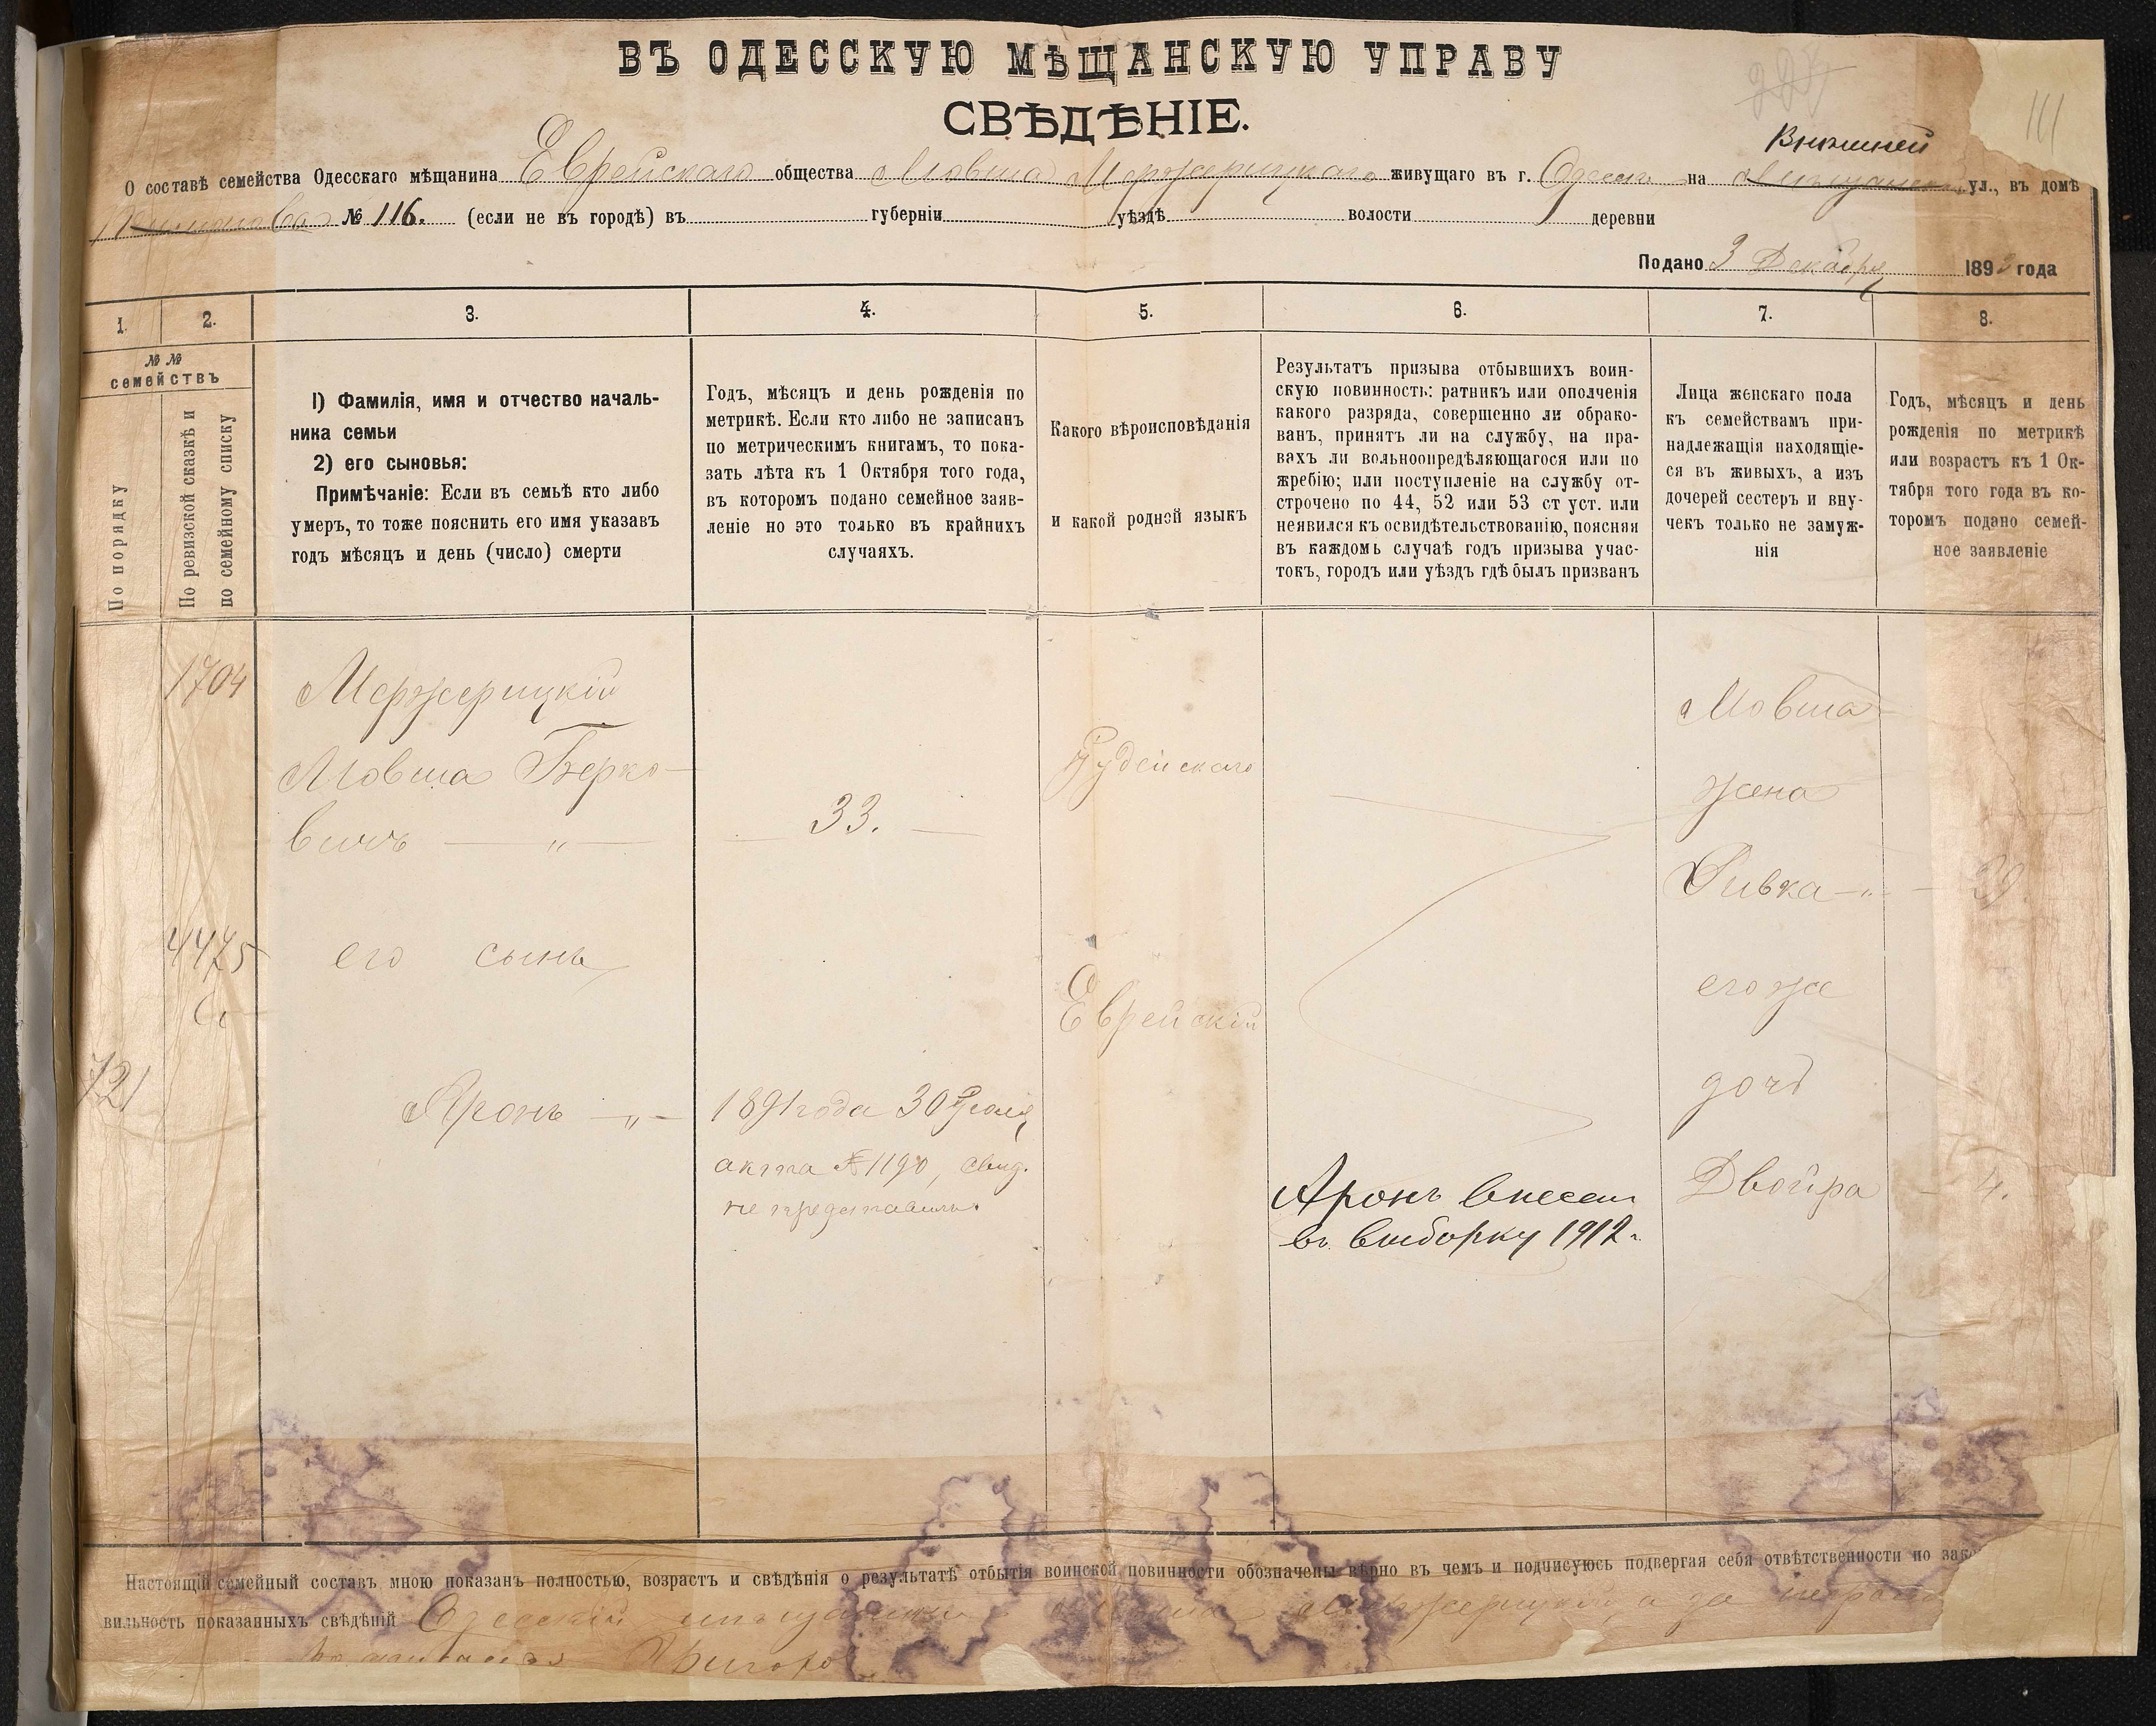 ВЪ ОДЕССКУЮ МѢЩАНСКУЮ УПРАВУ
СВѢДѢНІЕ.
111
Внѣшней
О составѣ семейства Одесскаго мѣщанина Еврейскаго общества Мовша Межерицкаго живущаго въ г. Одессѣ на ул., въ домѣ
№ 116. (если не въ городѣ) въ губерніи уѣздѣ волости деревни
Подано 3 Декабря 1893 года
1. 2. 3. 4. 5. 6. 7. 8.
№ №
семействъ
По порядку
По ревизской сказкѣ и
по семейному списку
1) Фамилія, имя и отчество началь-
ника семьи
2) его сыновья:
Примѣчаніе: Если въ семьѣ кто либо
умеръ, то тоже пояснить его имя указавъ
годъ мѣсяцъ и день (число) смерти
Годъ, мѣсяцъ и день рожденія по
метрикѣ. Если кто либо не записанъ
по метрическимъ книгамъ, то пока-
зать лѣта къ 1 Октября того года,
въ которомъ подано семейное заяв-
леніе но это только въ крайнихъ
случаяхъ.
Какого вѣроисповѣданія
и какой родной языкъ
Результатъ призыва отбывшихъ воин-
скую повинность: ратникъ или ополченія
какого разряда, совершенно ли обрако-
ванъ, принятъ ли на службу, на пра-
вахъ ли вольноопредѣляющагося или по
жребію; или поступленіе на службу от-
строчено по 44, 52 или 53 ст уст. или
неявился къ освидѣтельствованію, поясняя
въ каждомъ случаѣ годъ призыва учас-
токъ, городъ или уѣздъ гдѣ былъ призванъ
Лица женскаго пола
къ семействамъ при-
надлежащія находящіе-
ся въ живыхъ, а изъ
дочерей сестеръ и вну-
чекъ только не замуж-
нія
Годъ, мѣсяцъ и день
рожденія по метрикѣ
или возрастъ къ 1 Ок-
тября того года въ ко-
торомъ подано семей-
ное заявленіе
1704
Межерицкій
Мовша Берко-
вичъ — " —
33.
Іудейскаго
Мовша
жена
Ривка — " — 29.
4475
его сынъ
Еврейскій
его же
721
дочь
Аронъ — " —
1891 года 30 Іюля
акта № 1190, свид.
не представилъ.
Двойра — 4.
Аронъ внесенъ
въ выборку 1912 г.
Настоящій семейный составъ мною показанъ полностью, возрастъ и свѣдѣнія о результатѣ отбытія воинской повинности обозначены вѣрно въ чемъ и подписуюсь подвергая себя отвѣтственности по зак
вильность показанныхъ свѣдѣній Одесскій мѣщанинъ Мовша Межерицкій, а за неграм